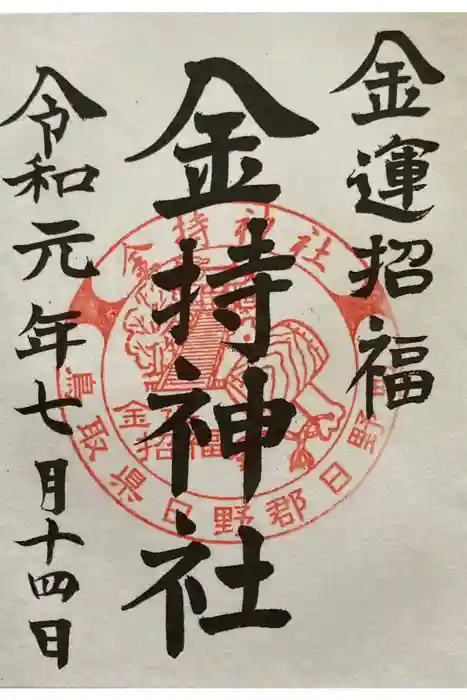 金運招福
金持神社
令和元年七月十四日
金持神社
鳥取県日野郡日野
金
招福